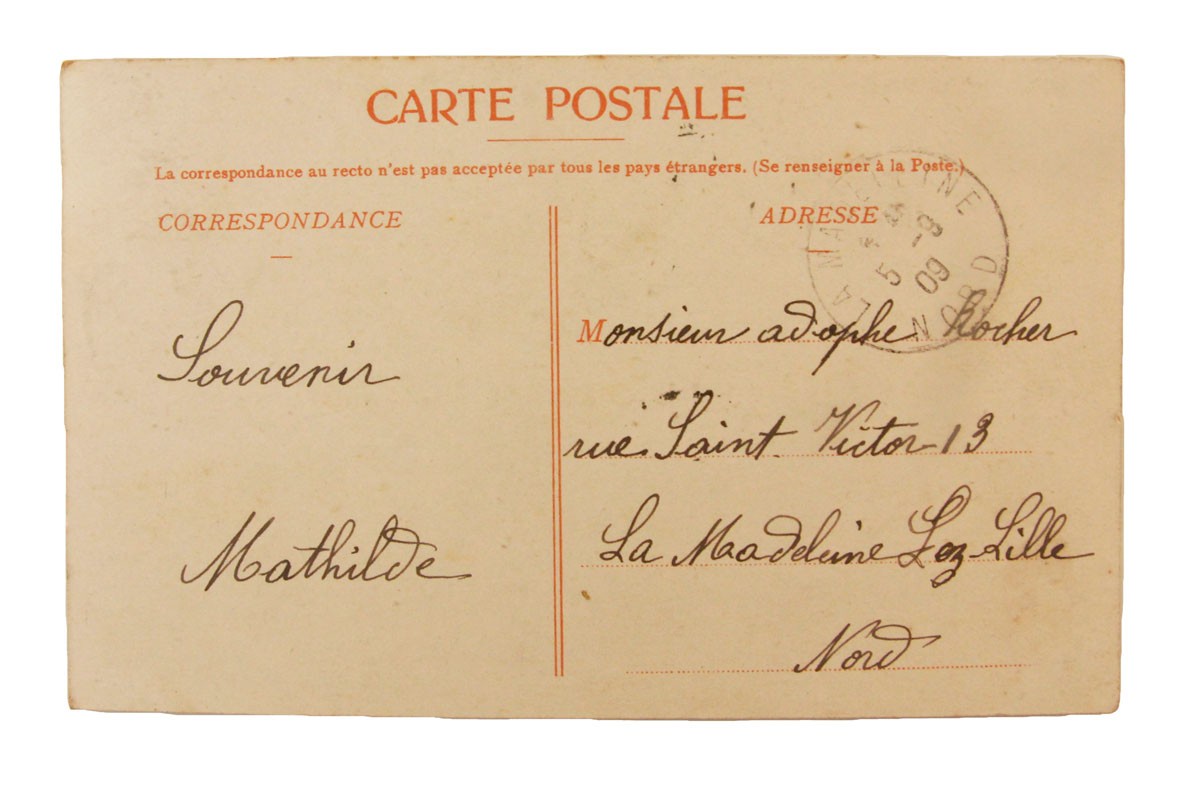 CARTE POSTALE
La correspondance au recto n'est pas acceptée par tous les pays étrangers. (Se renseigner à la Poste.)
CORRESPONDANCE
ADRESSE
LA MADELEINE
5 -8
09
NORD
Souvenir
Mathilde
Monsieur adophe Rocher
rue Saint Victor 13
La Madeleine Lez Lille
Nord